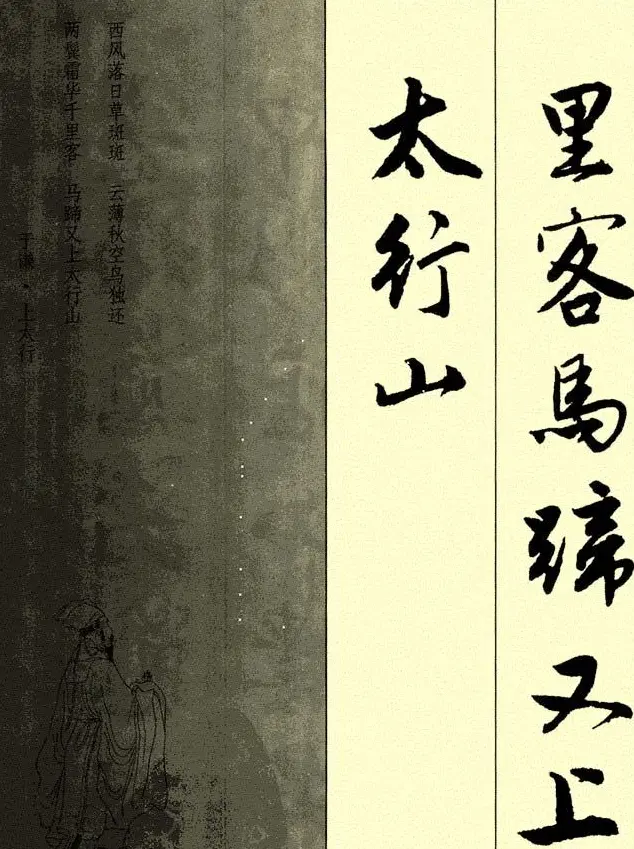 里客馬蹄又上
太行山
西风落日草斑斑 云薄秋空鸟独还
两鬓霜华千里客 马蹄又上太行山
于谦·上太行